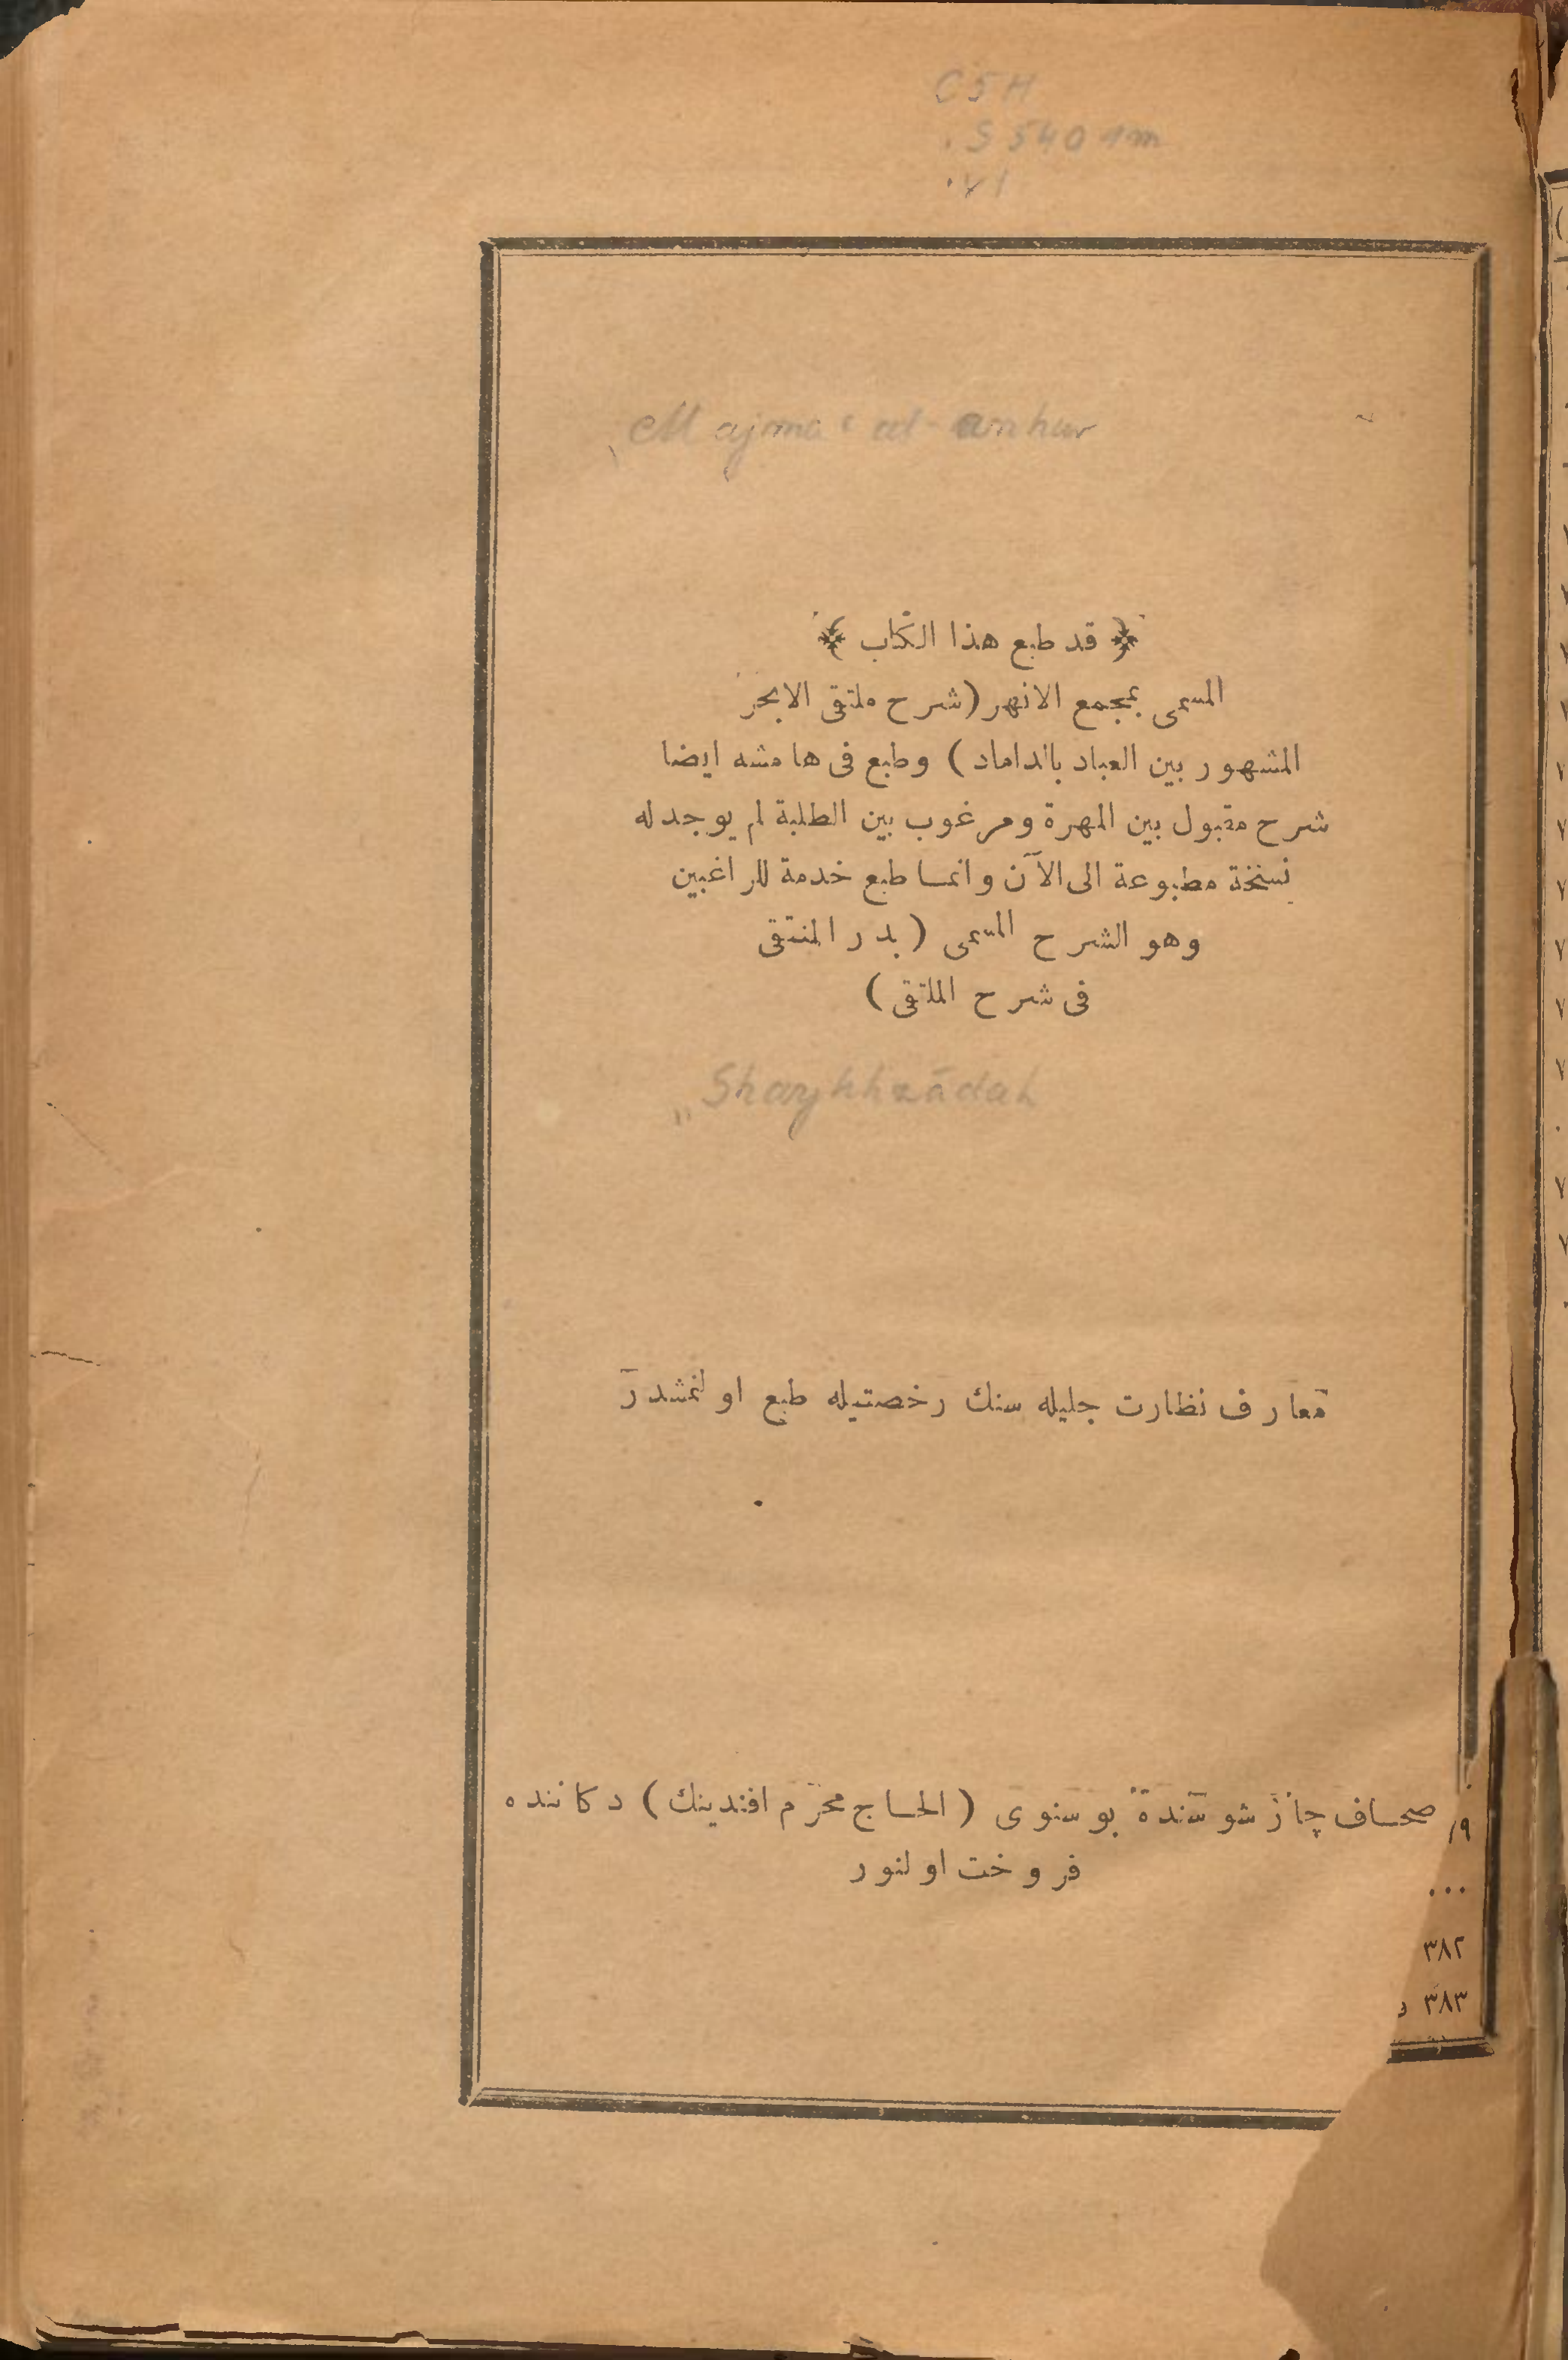 C5H
.S5401m
.v1
Majmaʿ al-anhur
﴿ قد طبع هذا الكتاب ﴾
المسمى بمجمع الانهر (شرح ملتقى الابحر
المشهور بين العباد بالداماد) وطبع فى هامشه ايضا
شرح مقبول بين المهرة ومرغوب بين الطلبة لم يوجد له
نسخة مطبوعة الى الآن وانما طبع خدمة للراغبين
وهو الشرح المسمى (بدر المنتقى
فى شرح الملتقى)
Shaykhzādah
معارف نظارت جليله سنك رخصتيله طبع اولنمشدر
صحاف چارشوسنده بوسنوى (الحاج محرم افندينك) دكاننده
فروخت اولنور
٣٨٢
٣٨٣